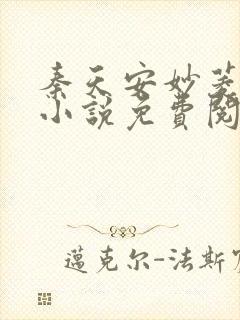 秦天安妙菱
小説免費閱
邁克尔-法斯宾